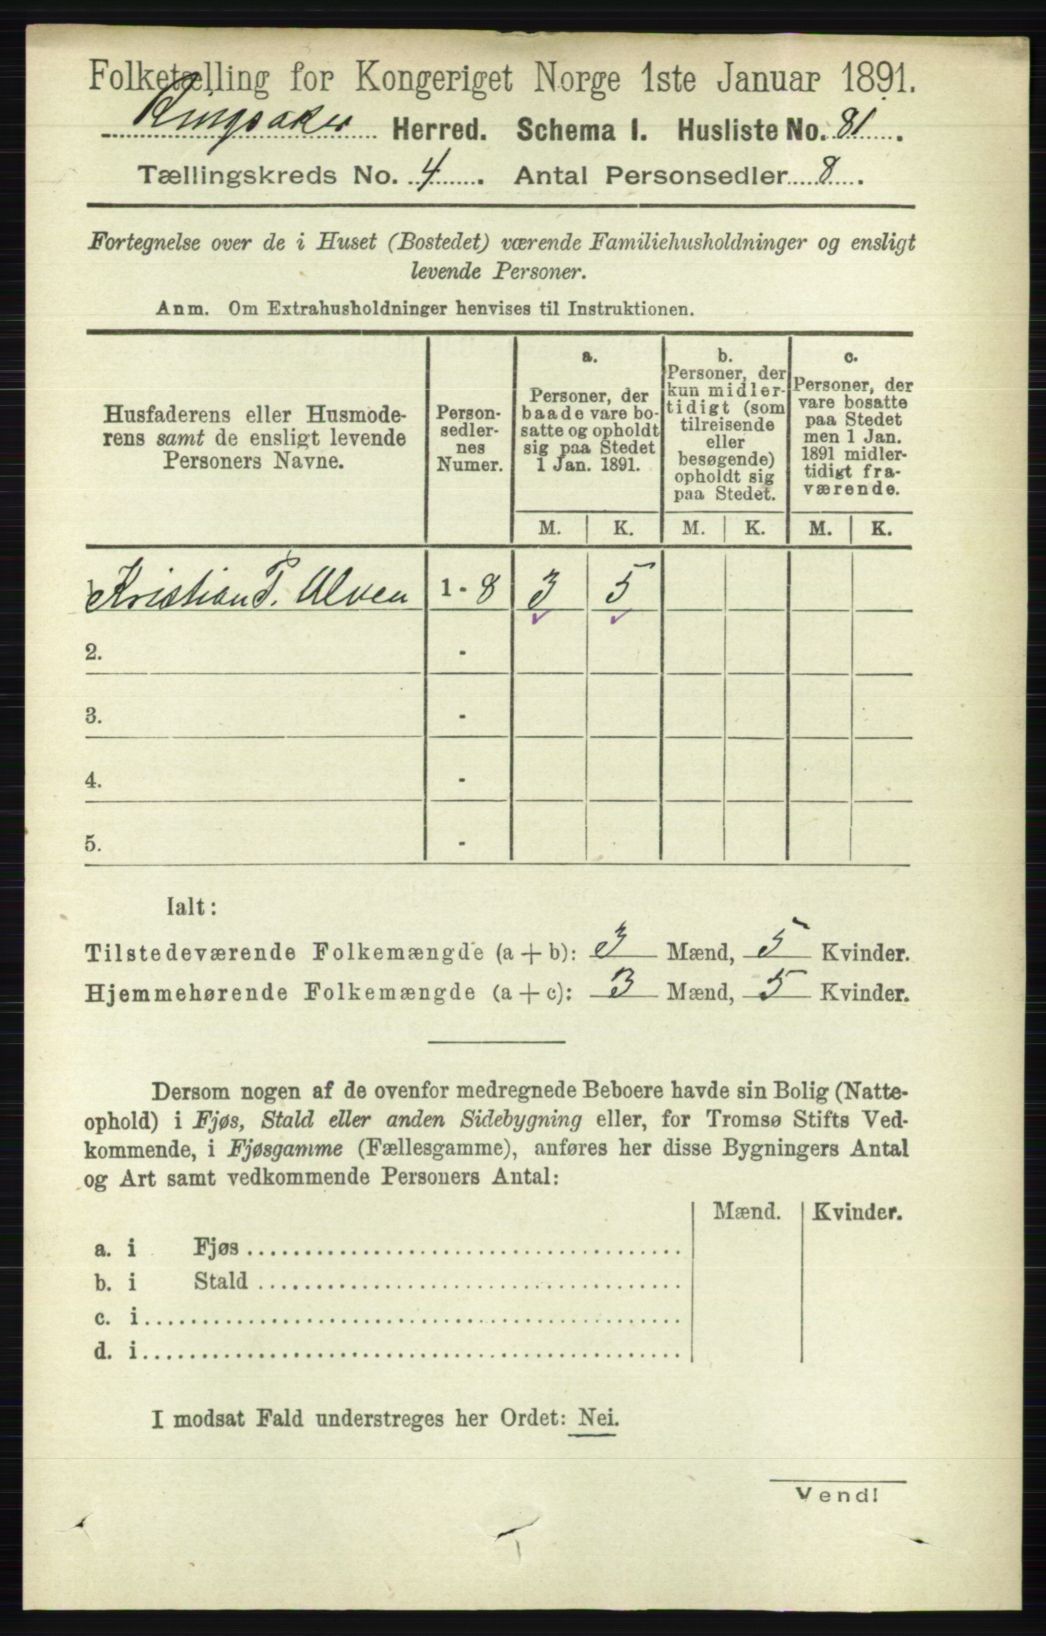 Folketælling for Kongeriget Norge 1ste Januar 1891.
Ringsaker Herred. Schema I. Husliste No. 81.
Tællingskreds No. 4. Antal Personsedler 8.
Fortegnelse over de i Huset (Bostedet) værende Familiehusholdninger og ensligt
levende Personer.
Anm. Om Extrahusholdninger henvises til Instruktionen.
Husfaderens eller Husmode-
rens samt de ensligt levende
Personers Navne.
Person-
sedler-
nes
Numer.
a.
Personer, der
baade vare bo-
satte og opholdt
sig paa Stedet
1 Jan. 1891.
b.
Personer, der
kun midler-
tidigt (som
tilreisende
eller
besøgende)
opholdt sig
paa Stedet.
c.
Personer, der
vare bosatte
paa Stedet
men 1 Jan.
1891 midler-
tidigt fra-
værende.
M. K. M. K. M. K.
Kristian P. Ulven 1 - 8 3 5
2. -
3. -
4. -
5. -
Ialt:
Tilstedeværende Folkemængde (a + b): 3 Mænd, 5 Kvinder.
Hjemmehørende Folkemængde (a + c): 3 Mænd, 5 Kvinder.
Dersom nogen af de ovenfor medregnede Beboere havde sin Bolig (Natte-
ophold) i Fjøs, Stald eller anden Sidebygning eller, for Tromsø Stifts Ved-
kommende, i Fjøsgamme (Fællesgamme), anføres her disse Bygningers Antal
og Art samt vedkommende Personers Antal:
Mænd. Kvinder.
a. i Fjøs
b. i Stald
c. i
d. i
I modsat Fald understreges her Ordet: Nei.
Vend!